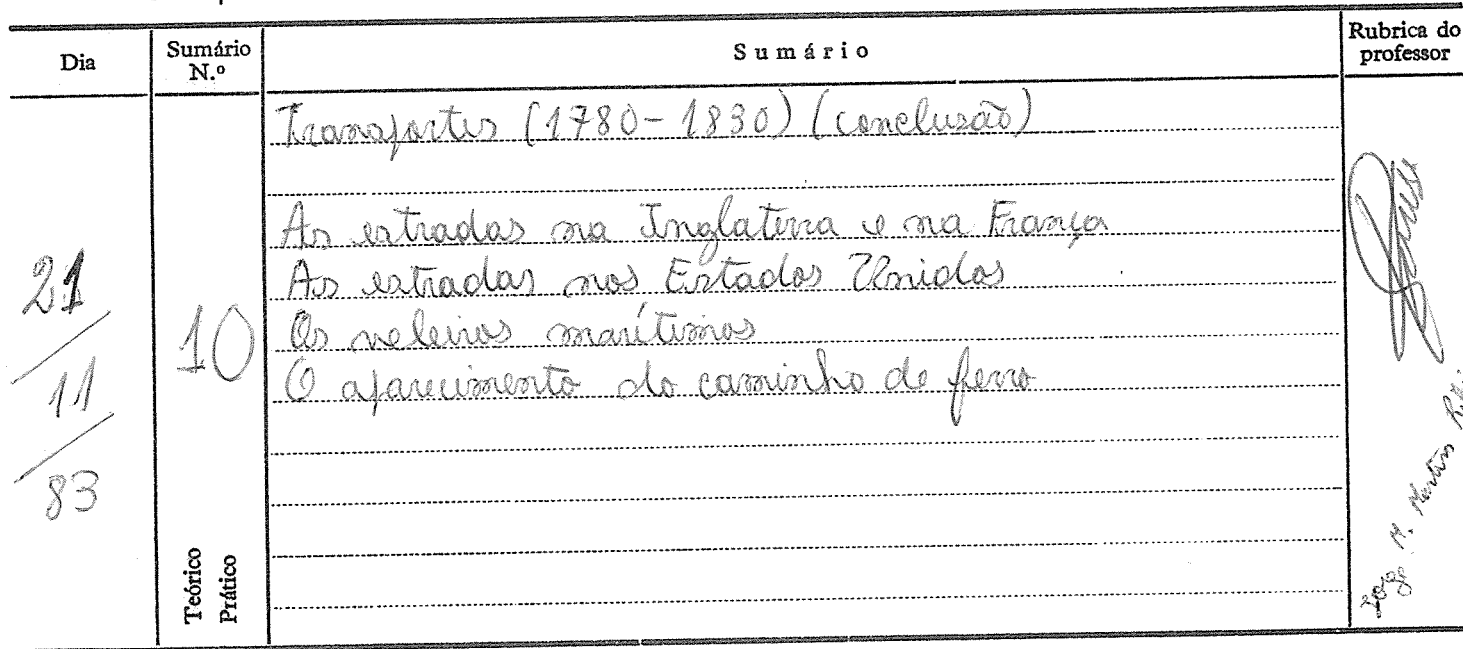 Dia
Sumário N.º
Sumário
Rubrica do professor
21/11/83
10
Teórico
Prático
Transportes (1780-1830) (conclusão)
As estradas na Inglaterra e na França
As estradas nos Estados Unidos
Os veleiros marítimos
O aparecimento do caminho de ferro
Jorge M. Martins